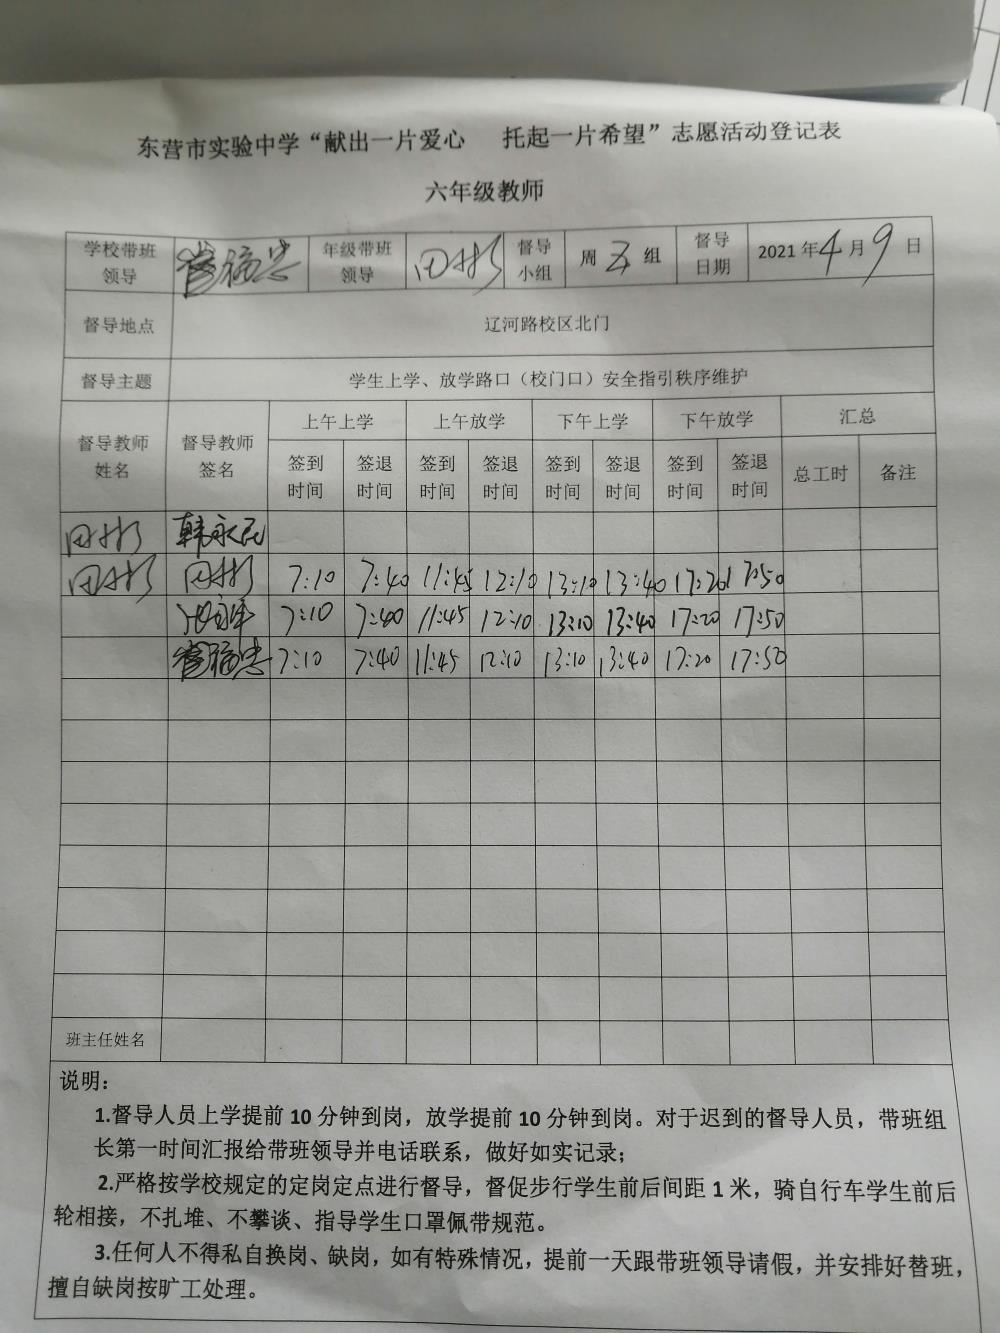 东营市实验中学“献出一片爱心 托起一片希望”志愿活动登记表
六年级教师
学校带班领导 年级带班领导 田彬 督导小组 周五组 督导日期 2021年4月9日
督导地点 辽河路校区北门
督导主题 学生上学、放学路口（校门口）安全指引秩序维护
督导教师姓名 督导教师签名 上午上学 上午放学 下午上学 下午放学 汇总
签到时间 签退时间 签到时间 签退时间 签到时间 签退时间 签到时间 签退时间 总工时 备注
田彬 韩永民
田彬 田彬 7:10 7:40 11:45 12:10 13:10 13:40 17:20 17:50
7:10 7:40 11:45 12:10 13:10 13:40 17:20 17:50
7:10 7:40 11:45 12:10 13:10 13:40 17:20 17:50
班主任姓名
说明：
1.督导人员上学提前10分钟到岗，放学提前10分钟到岗。对于迟到的督导人员，带班组
长第一时间汇报给带班领导并电话联系，做好如实记录；
2.严格按学校规定的定岗定点进行督导，督促步行学生前后间距1米，骑自行车学生前后
轮相接，不扎堆、不攀谈、指导学生口罩佩带规范。
3.任何人不得私自换岗、缺岗，如有特殊情况，提前一天跟带班领导请假，并安排好替班，
擅自缺岗按旷工处理。